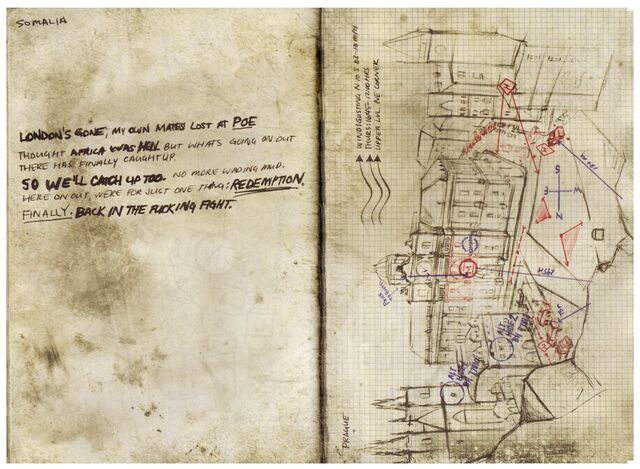 SOMALIA
LONDON'S GONE, MY OWN MATES LOST AT POE
THOUGHT AFRICA WAS HELL BUT WHATS GOING ON OUT
THERE HAS FINALLY CAUGHT UP.
SO WE'LL CATCH UP TOO. NO MORE WADING MUD.
HERE ON OUT, WE'RE FOR JUST ONE THING: REDEMPTION.
FINALLY. BACK IN THE FUCKING FIGHT.
WIND: GUSTING N 10 S 03-10 MPH
THURS: 1645-1700 HRS
UPPER LVL. NE CORNER
S
N
ALT
IN TYING
ALT
PRAGUE